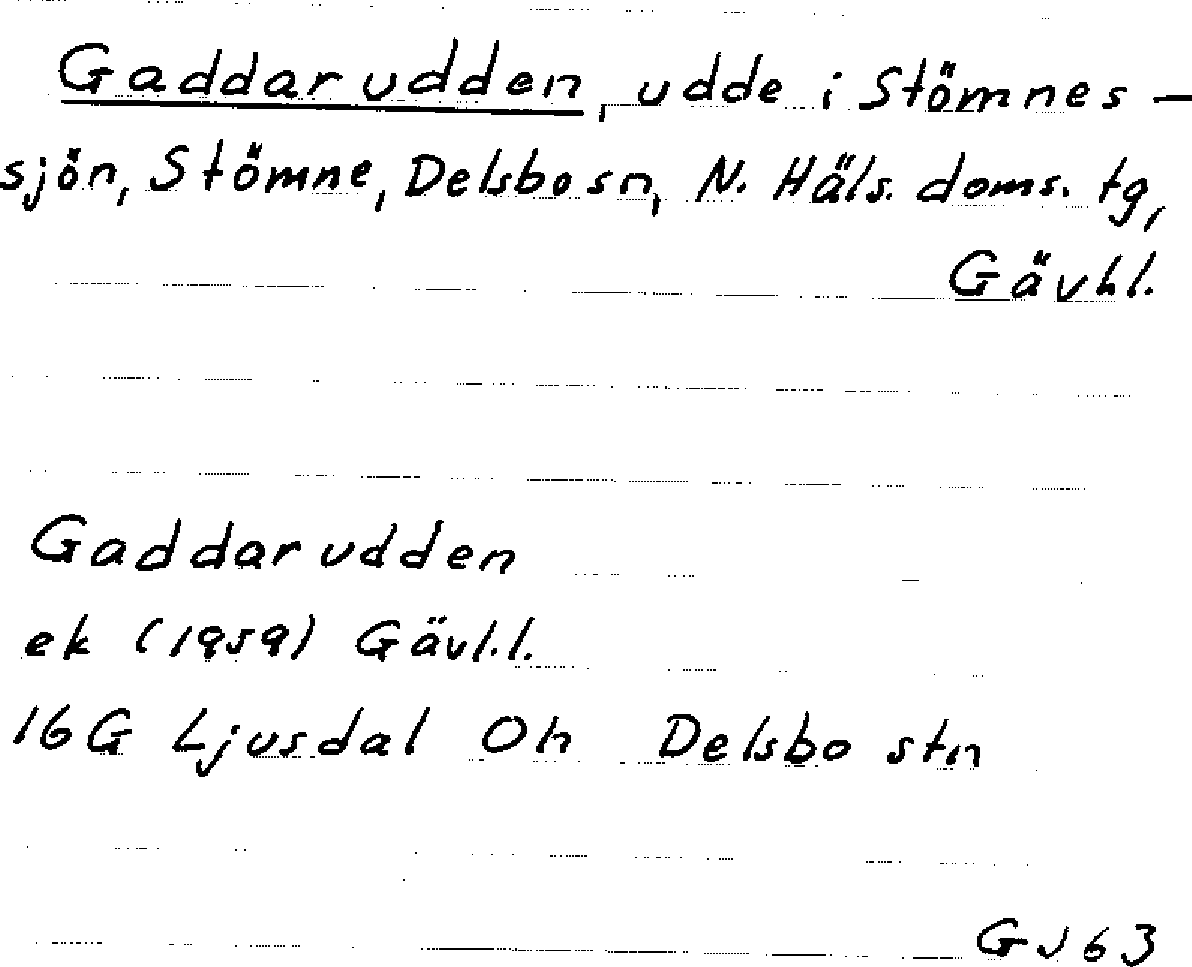 Gaddarudden, udde i Stömnes-
sjön, Stömne, Delsbo sn, N. Häls. doms. tg,
Gävhl.
Gaddarudden
ek (1959) Gävl.l.
16G Ljusdal Oh Delsbo stn
GJ63